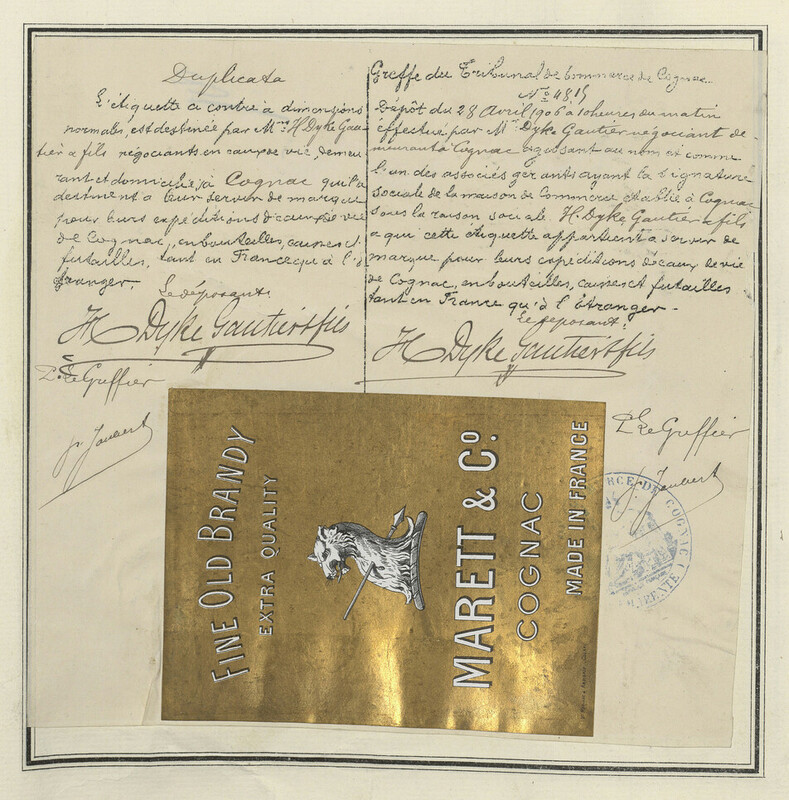 Duplicata
L'étiquette ci contre à dimensions
normales, est destinée par Mrs H Dyke Gau
tier & fils négociants en eaux de vie, demeu
rant et domiciliés à Cognac qu'ils
destinent à leur servir de marque
pour leurs expéditions d'eaux de vie
de Cognac, en bouteilles, caisses et
futailles, tant en France qu'à l'é
tranger.
Le déposant:
H Dyke Gautier & fils
Le Greffier
Greffe du Tribunal de Commerce de Cognac
No 4815
Dépôt du 28 Avril 1906 à 10 heures du matin
effectué par Mr Dyke Gautier négociant de-
meurant à Cognac agissant au nom et comme
l'un des associés gérants ayant la signature
sociale de la maison de Commerce établie à Cognac
sous la raison sociale H. Dyke, Gautier & fils
à qui cette étiquette appartient à servir de
marque pour leurs expéditions d'eaux de vie
de Cognac, en bouteilles, caisses et futailles
tant en France qu'à l'étranger.-
Le déposant:
H Dyke Gautier & fils
Le Greffier
FINE OLD BRANDY
EXTRA QUALITY
MARETT & Co.
COGNAC
MADE IN FRANCE
DE COGNAC